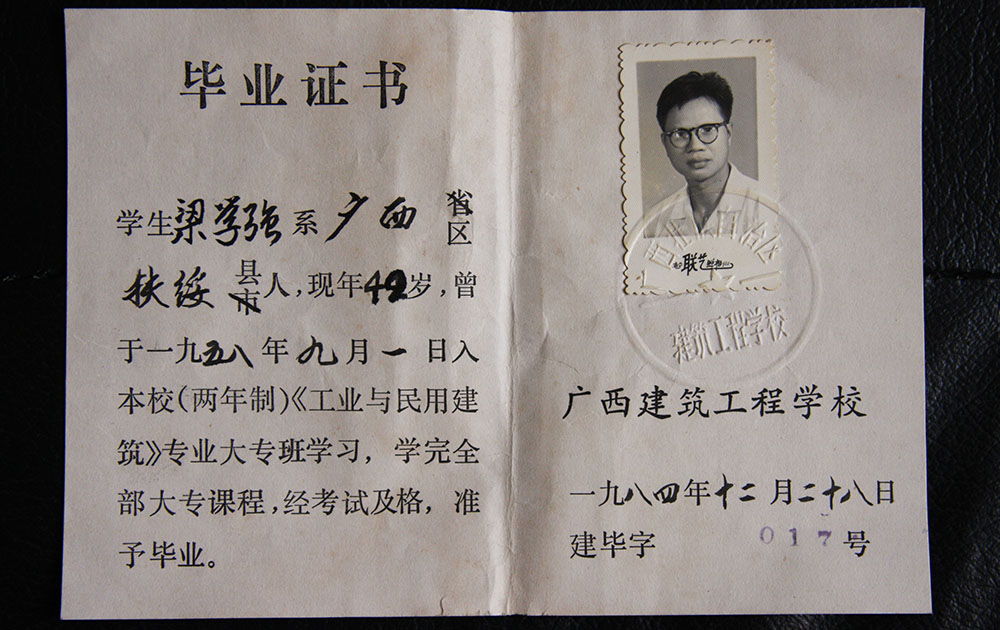 毕业证书
学生梁学强系广西省区
扶绥县市人，现年42岁，曾
于一九五八年九月一日入
本校(两年制)《工业与民用建
筑》专业大专班学习，学完全
部大专课程，经考试及格，准
予毕业。
西壮族自治区
联艺
建筑工程学校
广西建筑工程学校
一九八四年十二月二十八日
建毕字 017号